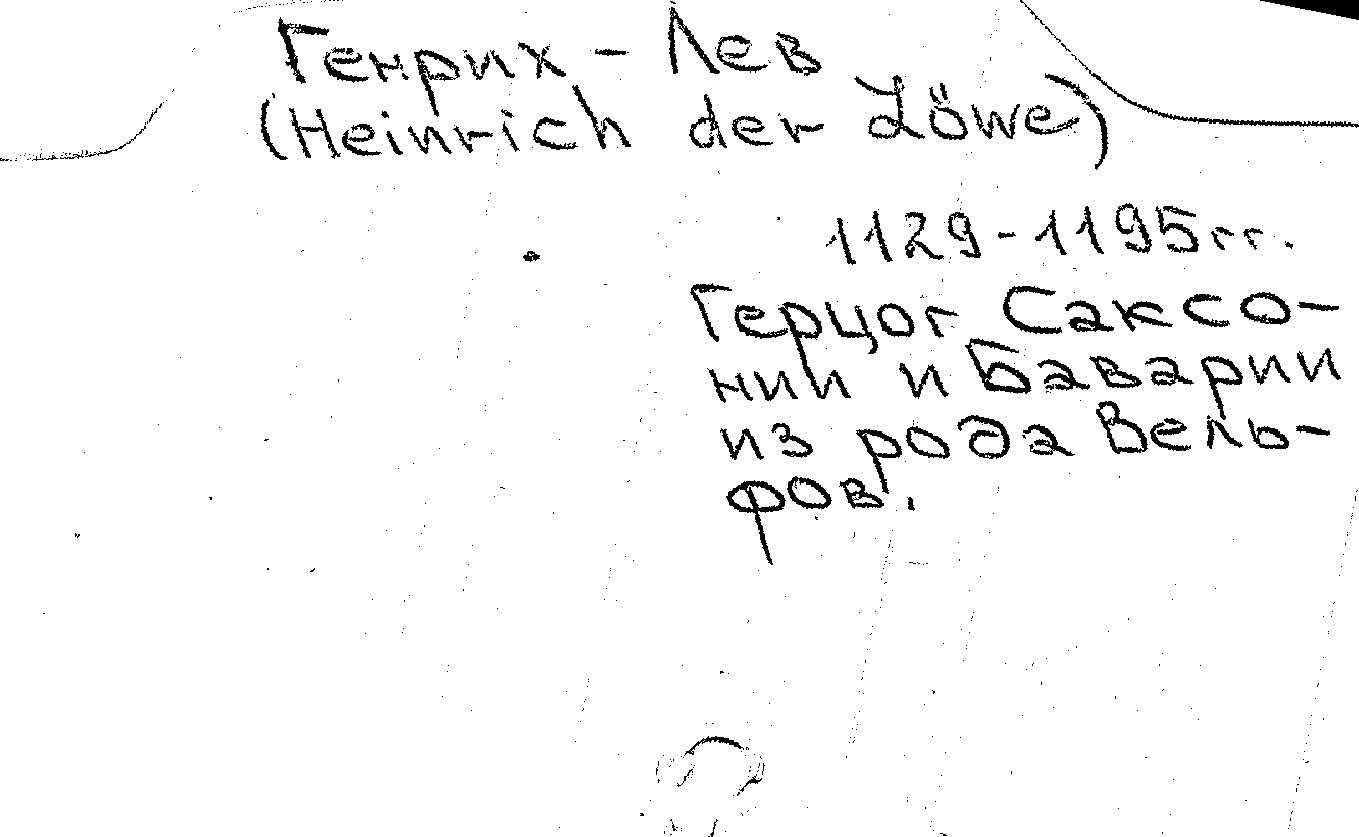 Генрих - Лев
(Heinrich der Löwe)
1129-1195гг.
Герцог Саксо-
нии и Баварии
из рода Вель-
фов.